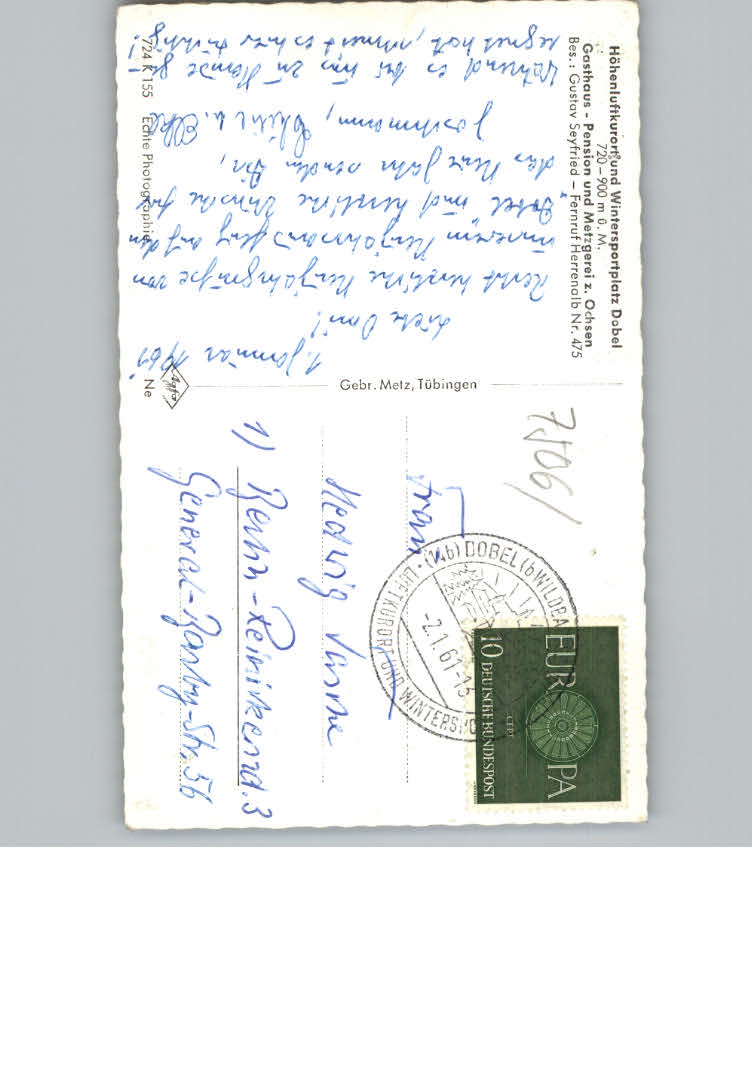 Höhenluftkurort und Wintersportplatz Dobel
720–900 m ü. M.
Gasthaus - Pension und Metzgerei z. Ochsen
Bes.: Gustav Seyfried – Fernruf Herrenalb Nr. 475
1. Januar 1961
Liebe Omi!
Recht herzliche Neujahrsgrüße von
unserem Neujahrsausflug auf den
Dobel und herzliche Wünsche für
das Neue Jahr senden Dir,
u. Elke
Während es bei uns zu Hause ge-
regnet hat, schneit es hier tüchtig!
724 K 155 Echte Photographie
Gebr. Metz, Tübingen
Agfa
Ne
7506/
Frau
Hedwig
1) Berlin-Reinickend. 3
General-Barby-Str. 56
(14b) DOBEL (b WILDBA
LUFTKURORT UND WINTERSPO
-2.1.61-15
EUROPA
CEPT
10 DEUTSCHE BUNDESPOST